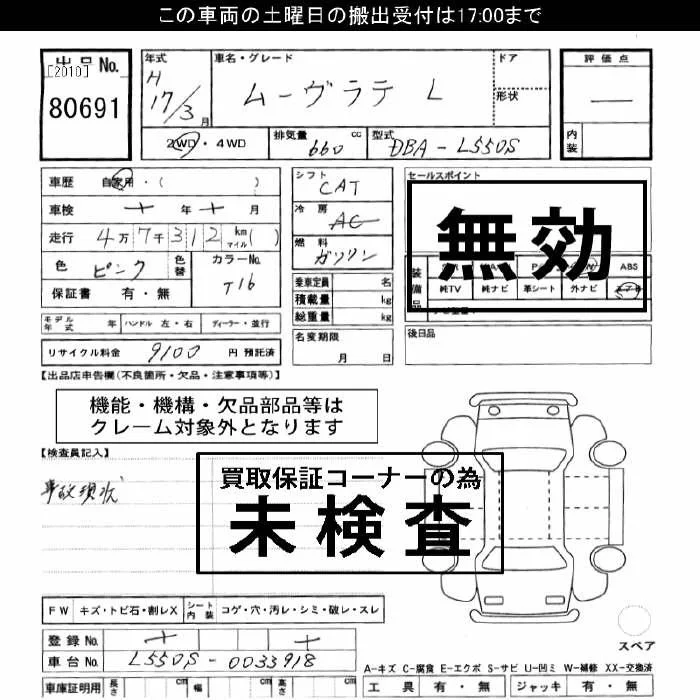 この車両の土曜日の搬出受付は17:00まで
出品No.
[2010]
80691
年式
H
17/3月
車名・グレード
ムーヴラテ L
ドア
形状
評価点
—
内装
2WD・4WD
排気量
660 cc
型式
DBA - L550S
車歴 自家用・( )
車検 年 月
走行 4万7千312 km マイル( )
色 ピンク
色替
カラーNo.
T16
保証書 有・無
シフト
CAT
冷房
AC
燃料
ガソリン
乗車定員 名
積載量 kg
総重量 kg
セールスポイント
無効
装備品
ABS
純TV 純ナビ 革シート 外ナビ
モデル年式 年 ハンドル 左・右 ディーラー・並行
名変期限
月 日
後日品
リサイクル料金 9100 円 預託済
【出品店申告欄(不良箇所・欠品・注意事項等)】
機能・機構・欠品部品等は
クレーム対象外となります
【検査員記入】
事故現状
買取保証コーナーの為
未検査
FW キズ・トビ石・割レX シート内装 コゲ・穴・汚レ・シミ・破レ・スレ
登録No.
車台No. L550S - 0033918
スペア
A-キズ C-腐食 E-エクボ S-サビ U-凹ミ W-補修 XX-交換済
車庫証明用 長さ cm 幅 cm 高さ cm
工具 有・無 ジャッキ 有・無